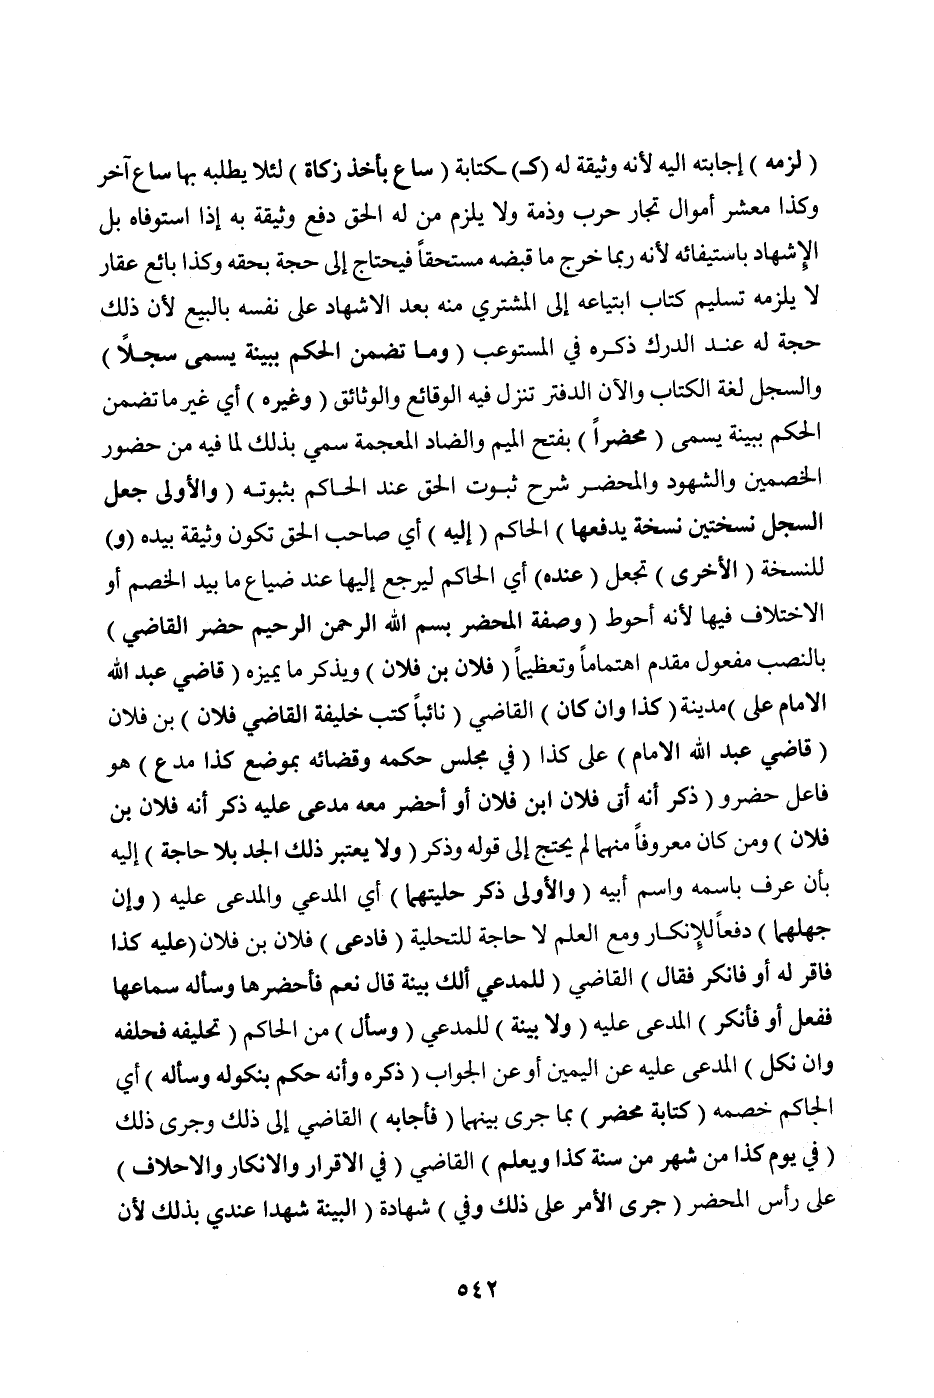 ( لزمه ) إجابته اليه لأنه وثيقة له (كـ) ـكتابة ( ساع بأخذ زكاة ) لئلا يطلبه بها ساع آخر
وكذا معشر أموال تجار حرب وذمة ولا يلزم من له الحق دفع وثيقة به إذا استوفاه بل
الإشهاد باستيفائه لأنه ربما خرج ما قبضه مستحقاً فيحتاج إلى حجة بحقه وكذا بائع عقار
لا يلزمه تسليم كتاب ابتياعه إلى المشتري منه بعد الاشهاد على نفسه بالبيع لأن ذلك
حجة له عند الدرك ذكره في المستوعب ( وما تضمن الحكم ببينة يسمى سجلاً )
والسجل لغة الكتاب والآن الدفتر تنزل فيه الوقائع والوثائق ( وغيره ) أي غير ما تضمن
الحكم ببينة يسمى ( محضراً ) بفتح الميم والضاد المعجمة سمي بذلك لما فيه من حضور
الخصمين والشهود والمحضر شرح ثبوت الحق عند الحاكم بثبوته ( والأولى جعل
السجل نسختين نسخة يدفعها ) الحاكم ( إليه ) أي صاحب الحق تكون وثيقة بيده (و)
للنسخة ( الأخرى ) تجعل ( عنده) أي الحاكم ليرجع إليها عند ضياع ما بيد الخصم أو
الاختلاف فيها لأنه أحوط ( وصفة المحضر بسم الله الرحمن الرحيم حضر القاضي )
بالنصب مفعول مقدم اهتماماً وتعظيماً ( فلان بن فلان ) ويذكر ما يميزه ( قاضي عبد الله
الامام على )مدينة( كذا وان كان ) القاضي ( نائباً كتب خليفة القاضي فلان ) بن فلان
( قاضي عبد الله الامام ) على كذا ( في مجلس حكمه وقضائه بموضع كذا مدع ) هو
فاعل حضرو ( ذكر أنه أتى فلان ابن فلان أو أحضر معه مدعى عليه ذكر أنه فلان بن
فلان ) ومن كان معروفاً منهما لم يحتج إلى قوله وذكر ( ولا يعتبر ذلك الجد بلا حاجة ) إليه
بأن عرف باسمه واسم أبيه ( والأولى ذكر حليتهما ) أي المدعي والمدعى عليه ( وإن
جهلهما ) دفعاً للإنكار ومع العلم لا حاجة للتحلية ( فادعى ) فلان بن فلان (عليه كذا
فاقر له أو فانكر فقال ) القاضي ( للمدعي ألك بينة قال نعم فأحضرها وسأله سماعها
ففعل أو فأنكر ) المدعى عليه ( ولا بينة ) للمدعي ( وسأل ) من الحاكم ( تحليفه فحلفه
وان نكل ) المدعى عليه عن اليمين أو عن الجواب ( ذكره وأنه حكم بنكوله وسأله ) أي
الحاكم خصمه ( كتابة محضر ) بما جرى بينهما ( فأجابه ) القاضي إلى ذلك وجرى ذلك
( في يوم كذا من شهر من سنة كذا ويعلم ) القاضي ( في الاقرار والانكار والاحلاف )
على رأس المحضر ( جرى الأمر على ذلك وفي ) شهادة ( البينة شهدا عندي بذلك لأن
٥٤٢